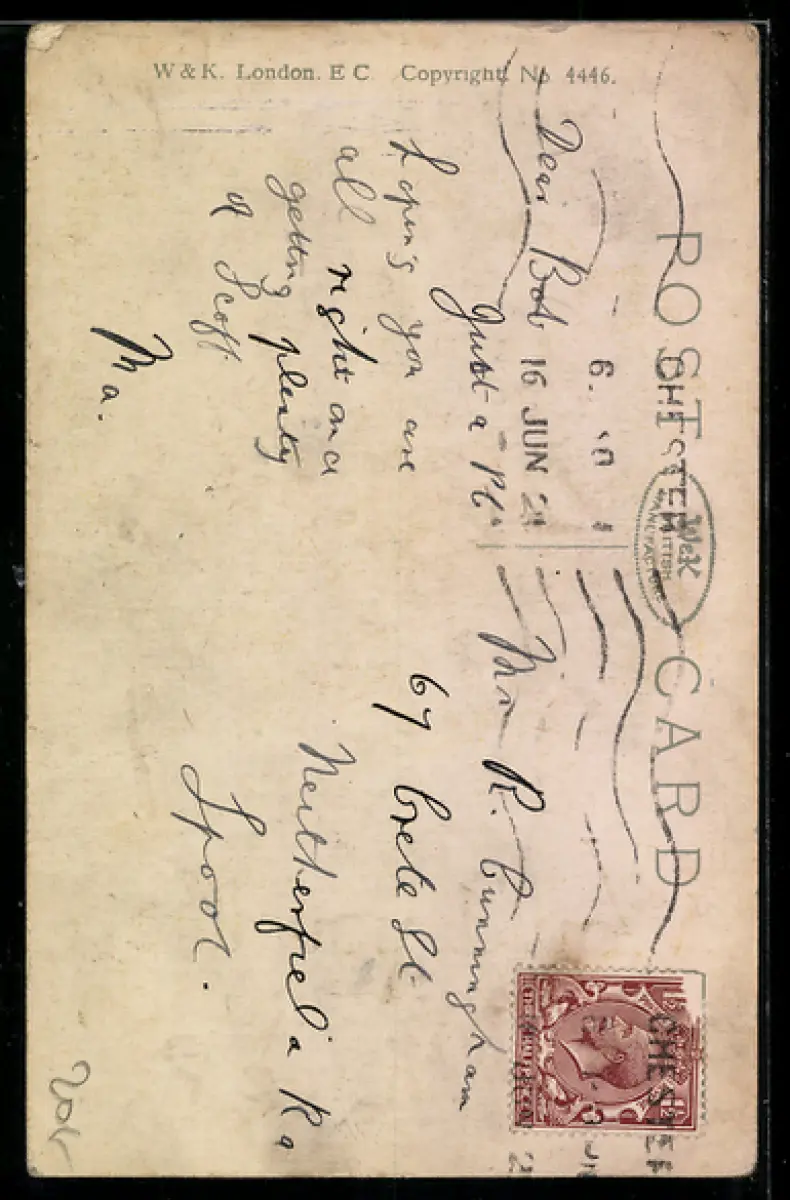 POST CARD
W&K
BRITISH MANUFACTURE
CHESTER
16 JUN 21
CHESTER
Dear Bob
Just a PC
hoping you are
all right and
getting plenty
of Scoff
Ma.
Mr R. Cunningham
67 Crete St
Netherfield Rd
Lpool.
W & K. London. E C Copyright. No 4446.